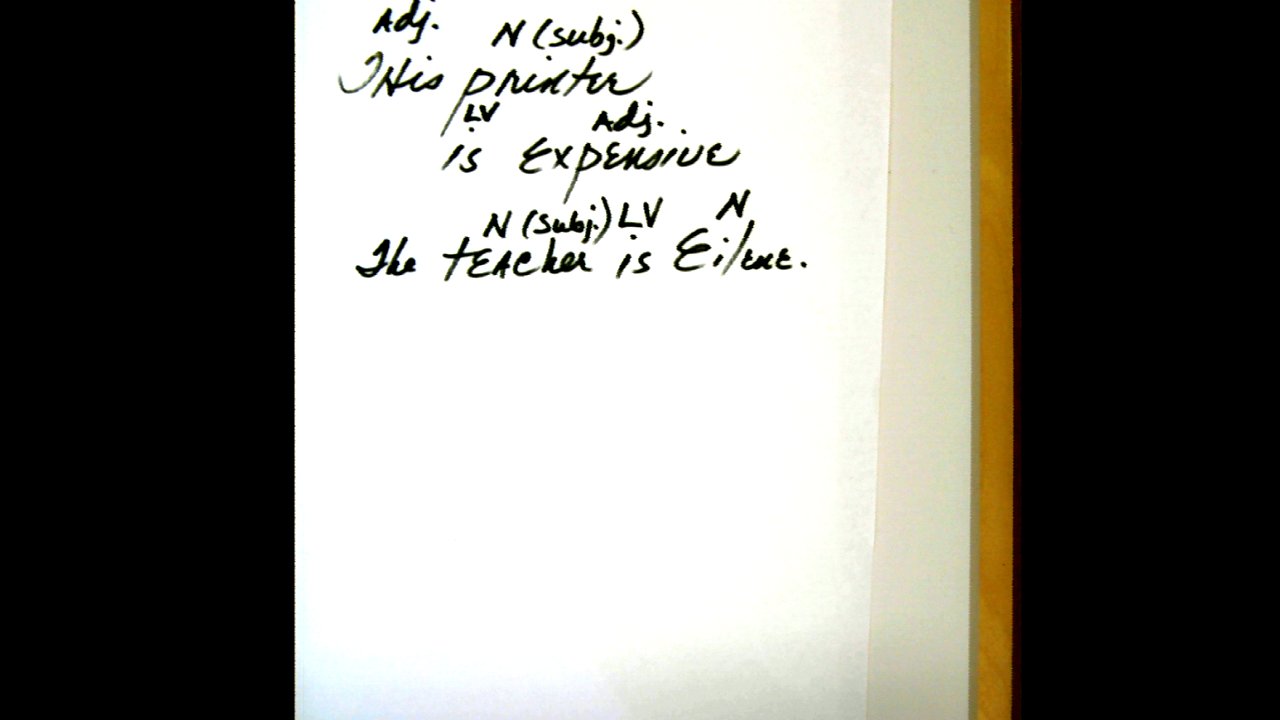 Adj. N (subj.)
THis printer
LV Adj.
is Expensive
N (subj.) LV N
The tEAcher is Eilene.